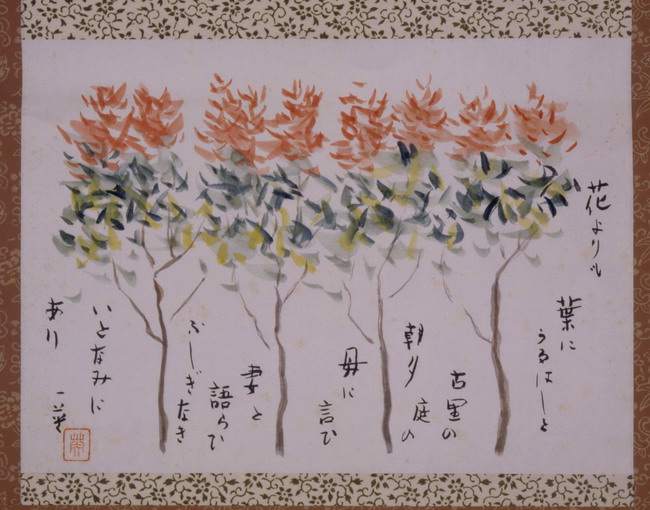 花よりも
葉に
うるはしと
古里の
朝夕庭の
母に
言ひ
妻と
語らひ
ふしぎなき
いとなみに
あり